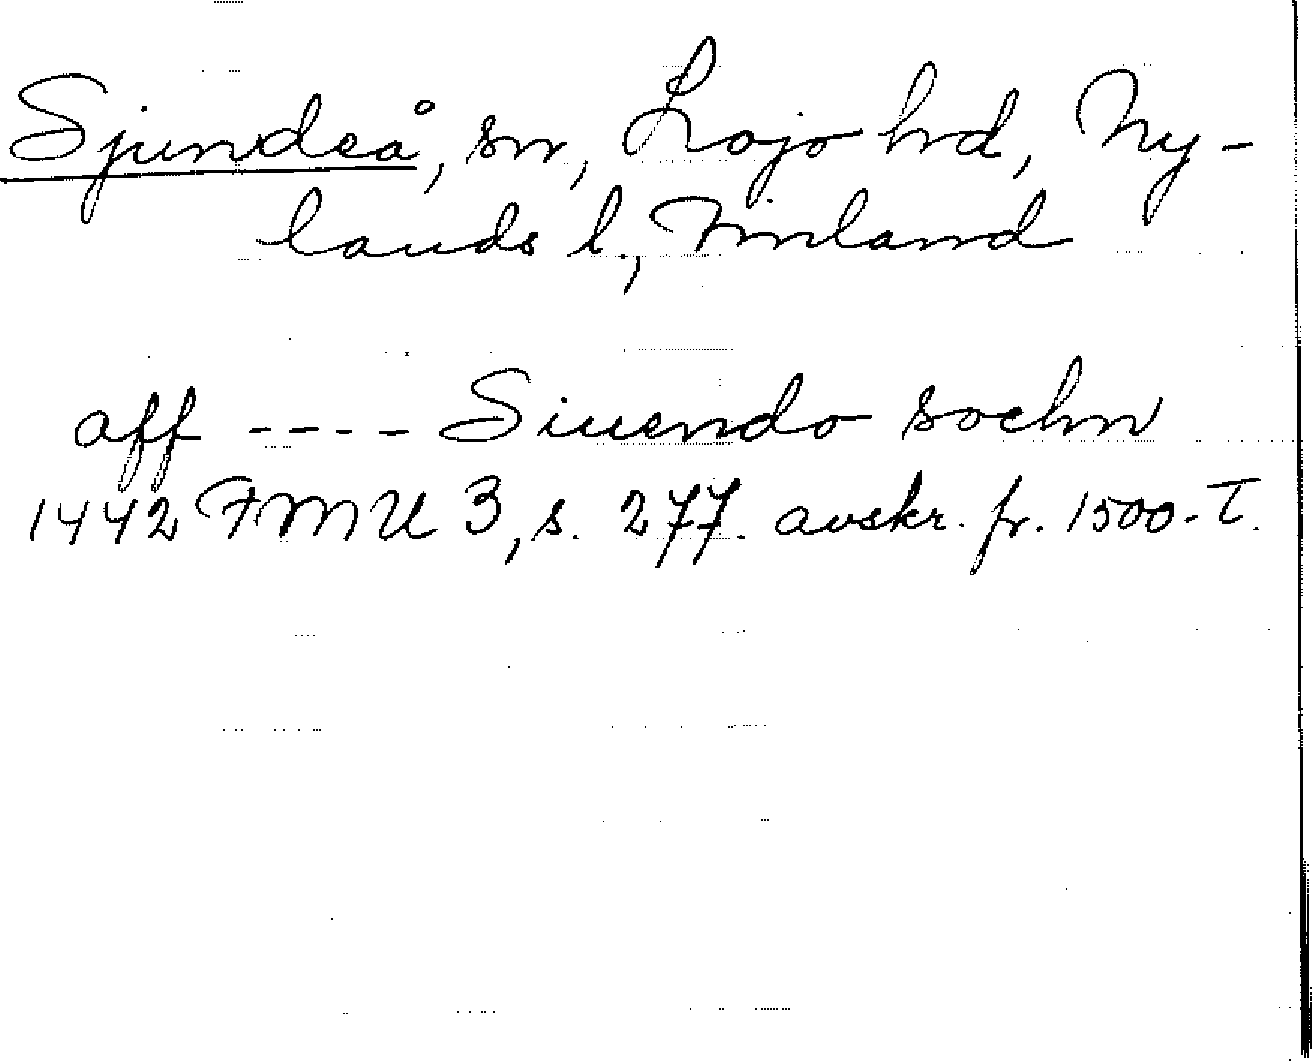 Sjundeå, sn, Lojo hrd, Ny-
lands l., Finland
aff ---- Siuendo sochn
1442 FMU 3, s. 277. avskr. fr. 1500-t.